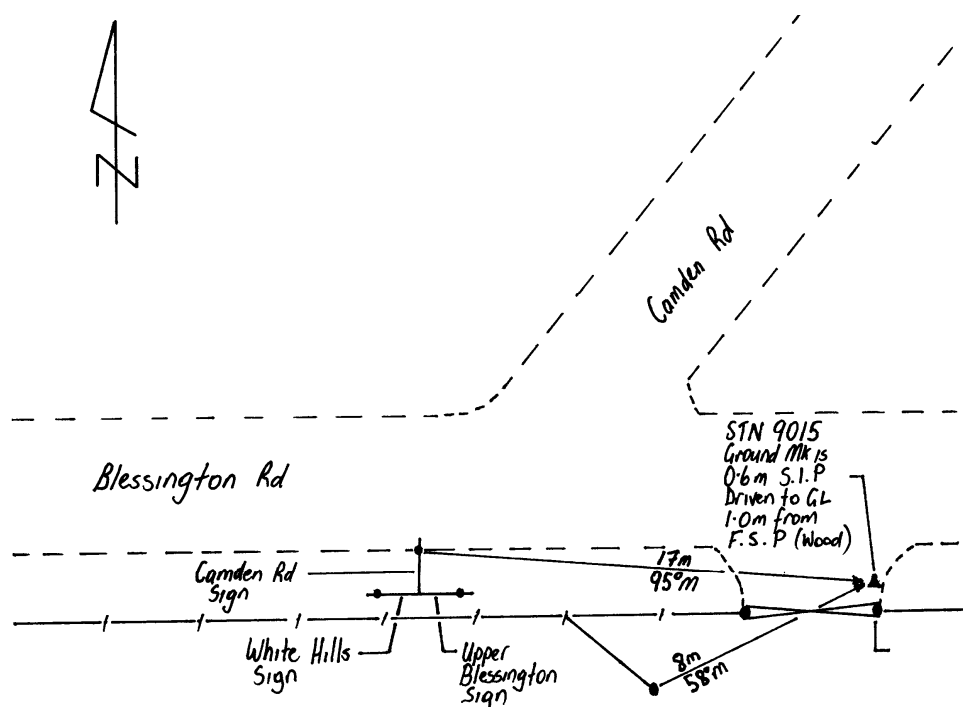 N
Camden Rd
Blessington Rd
STN 9015
Ground Mk is
0.6m S.I.P
Driven to GL
1.0m from
F.S.P (Wood)
17m
95°m
Camden Rd
Sign
White Hills
Sign
Upper
Blessington
Sign
8m
58°m